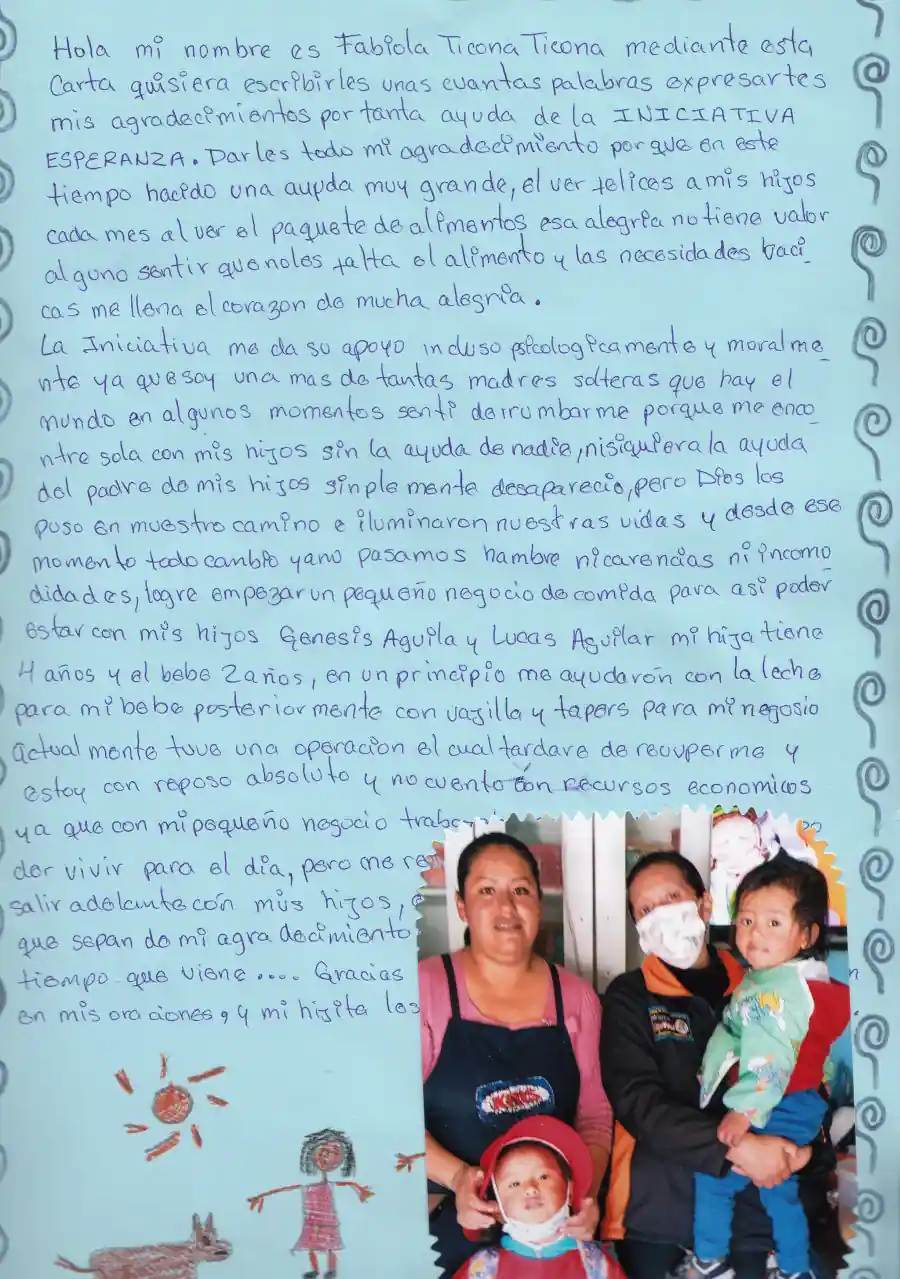 Hola mi nombre es Fabiola Ticona Ticona mediante esta
Carta quisiera escribirles unas cuantas palabras expresartes
mis agradecimientos por tanta ayuda de la INICIATIVA
ESPERANZA. Darles todo mi agradecimiento porque en este
tiempo hacido una aupda muy grande, el ver felices a mis hijos
cada mes al ver el paquete de alimentos esa alegria no tiene valor
alguno sentir que noles falta el alimento y las necesidades baci_
cas me llena el corazon de mucha alegria.
La Iniciativa me da su apoyo incluso psicologicamente y moralme_
nte ya que soy una mas de tantas madres solteras que hay el
mundo en algunos momentos senti derrumbarme porque me enco_
ntre sola con mis hijos sin la ayuda de nadie, nisiquiera la ayuda
del padre de mis hijos sinplemente desaparecio, pero Dios los
puso en muestro camino e iluminaron nuestras vidas y desde ese
momento todo cambio yano pasamos hambre nicarencias ni incomo
didades, logre empezar un pequeño negocio de comida para asi poder
estar con mis hijos Genesis Aguila y Lucas Aguilar mi hija tiene
4 años y el bebe 2 años, en un principio me ayudaron con la leche
para mi bebe posteriormente con vajilla y tapers para mi negosio
actualmente tuve una operacion el cual tardare de recuperme y
estoy con reposo absoluto y no cuento con recursos economicos
ya que con mi pequeño negocio
der vivir para el dia, pero me
salir adelante con mis hijos,
que sepan de mi agradecimiento
tiempo que viene.... Gracias
en mis oraciones, y mi hijita los
KRIS